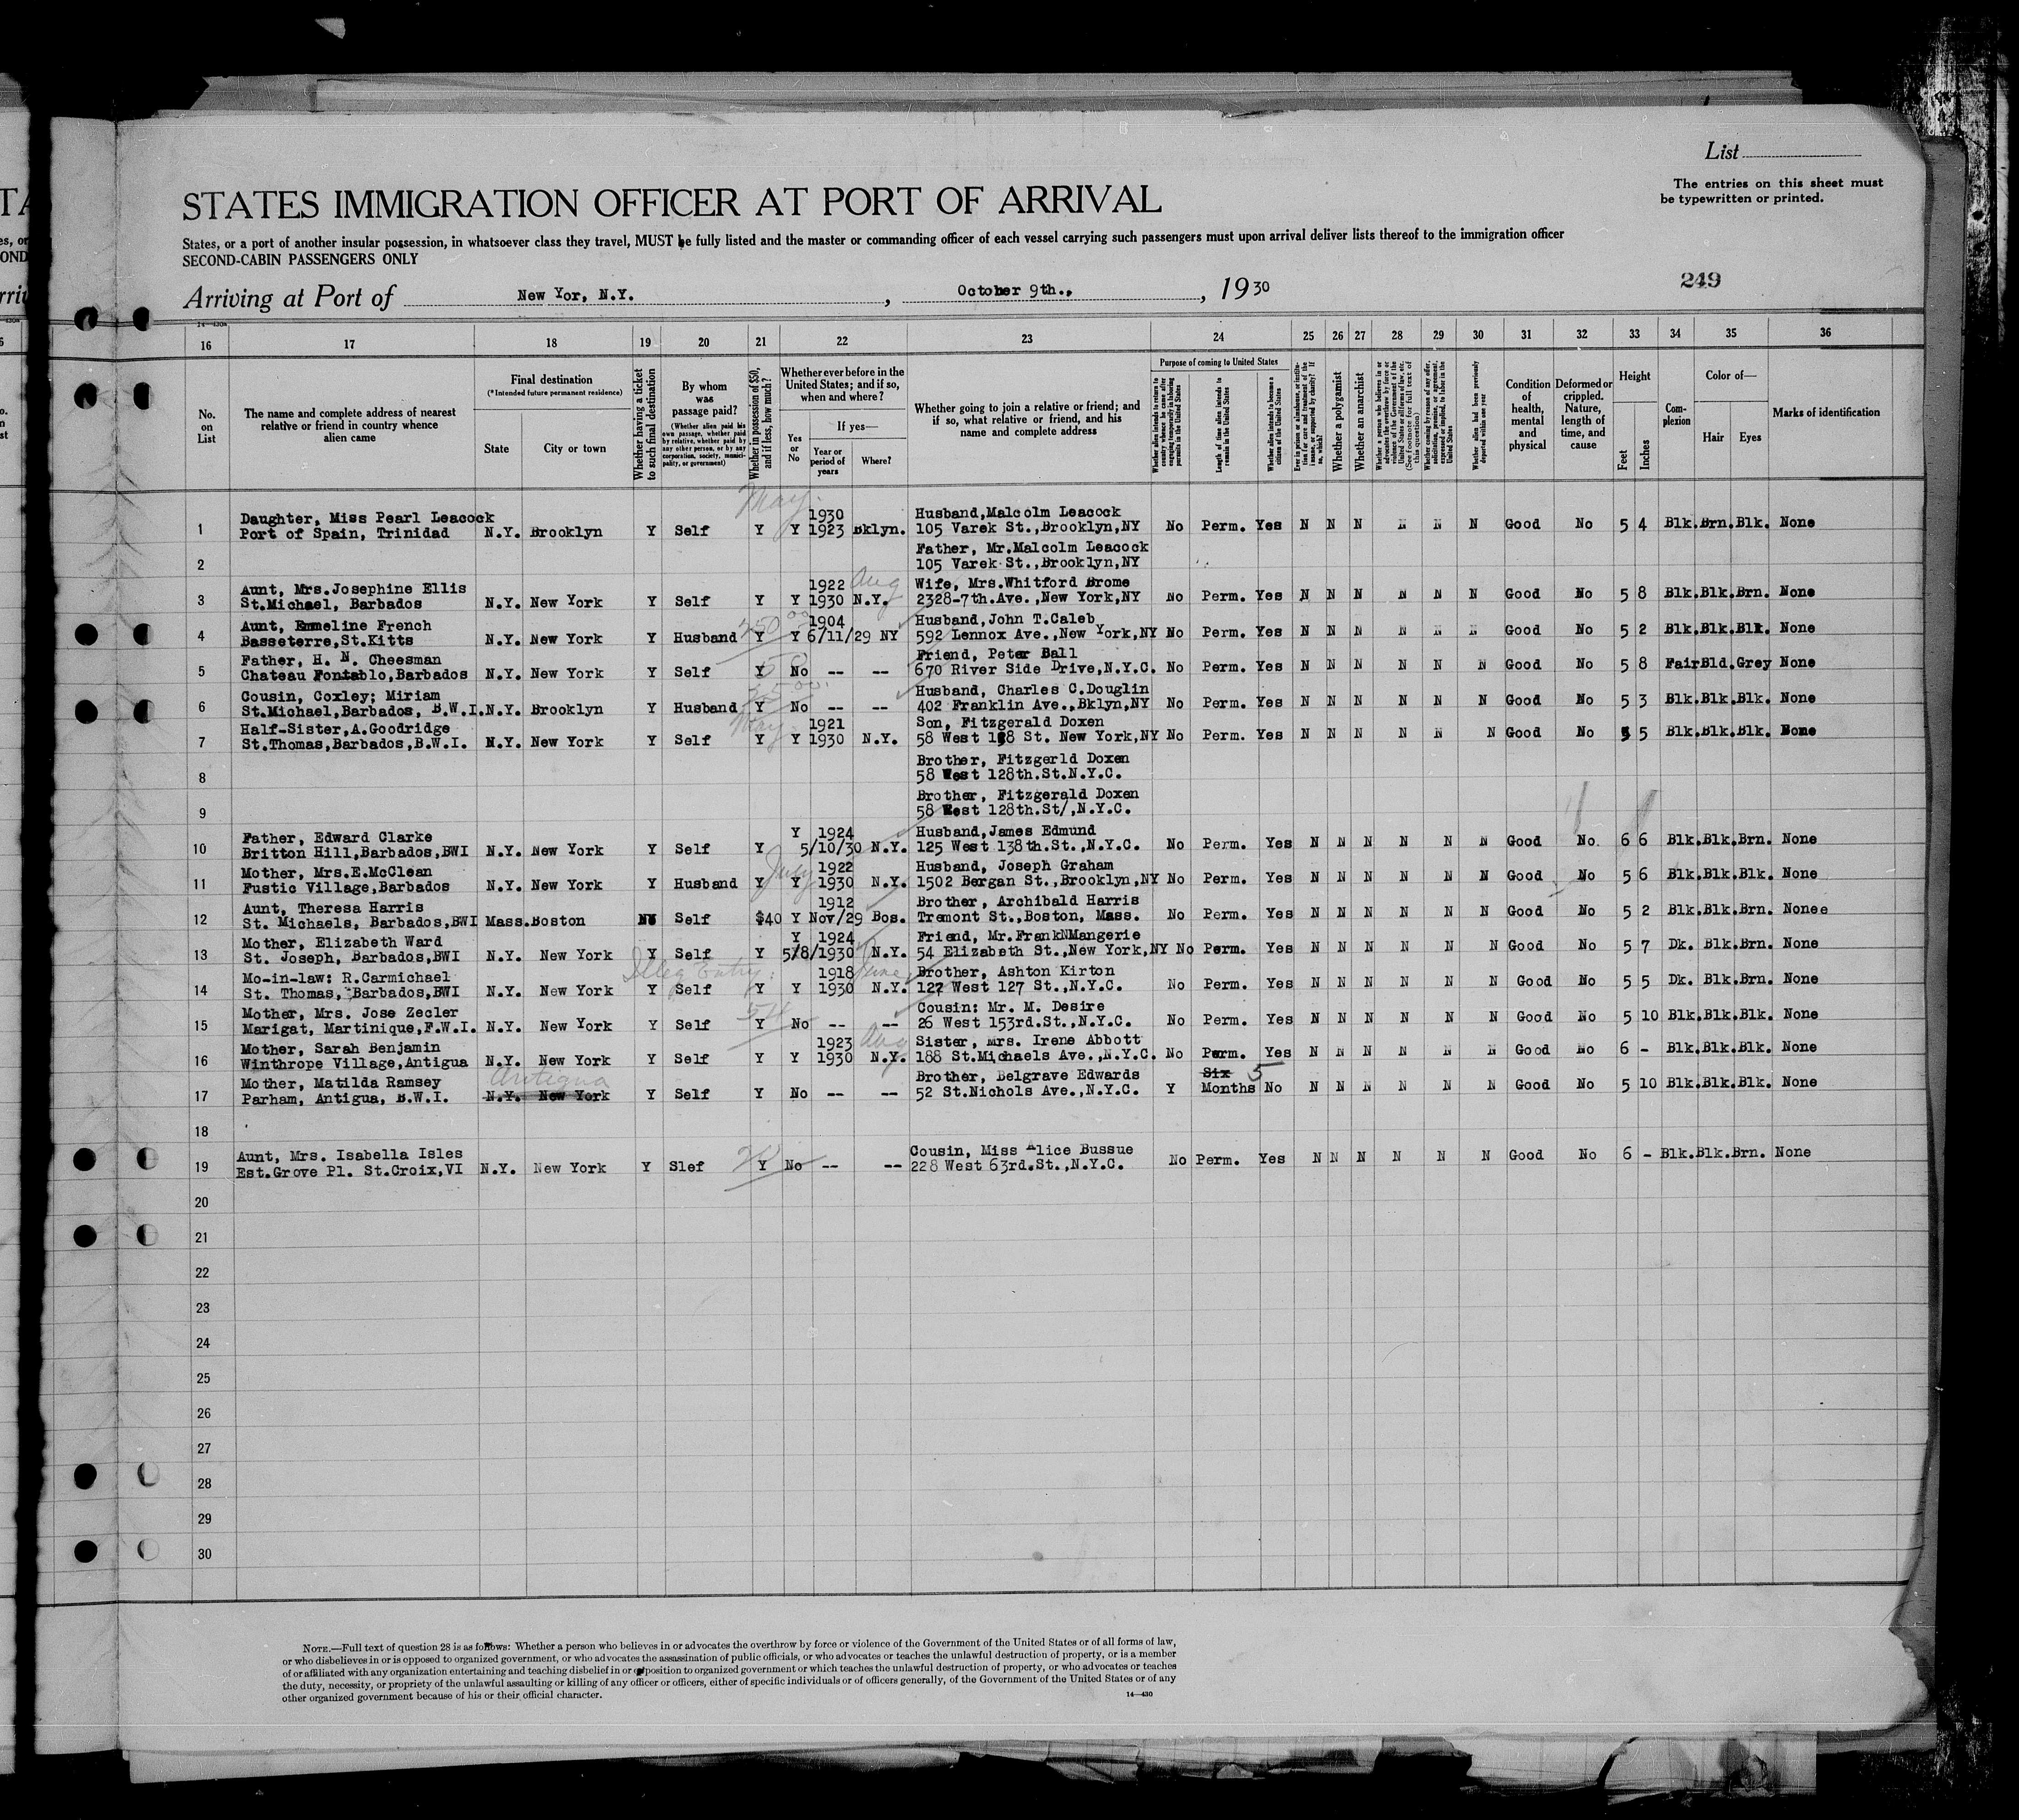 List
The entries on this sheet must
be typewritten or printed.
STATES IMMIGRATION OFFICER AT PORT OF ARRIVAL
States, or a port of another insular possession, in whatsoever class they travel, MUST be fully listed and the master or commanding officer of each vessel carrying such passengers must upon arrival deliver lists thereof to the immigration officer
SECOND-CABIN PASSENGERS ONLY
249
Arriving at Port of New Yor, N.Y. , October 9th., , 1930
16 17 18 19 20 21 22 23 24 25 26 27 28 29 30 31 32 33 34 35 36
No. on List
The name and complete address of nearest relative or friend in country whence alien came
Final destination
(*Intended future permanent residence)
State City or town
Whether having a ticket to such final destination
By whom was passage paid?
(Whether alien paid his own passage, whether paid by relative, whether paid by any other person, or by any corporation, society, municipality, or government)
Whether in possession of $50, and if less, how much?
Whether ever before in the United States; and if so, when and where?
Yes or No
If yes—
Year or period of years
Where?
Whether going to join a relative or friend; and if so, what relative or friend, and his name and complete address
Purpose of coming to United States
Whether alien intends to return to country whence he came after engaging temporarily in laboring pursuits in the United States
Length of time alien intends to remain in the United States
Whether alien intends to become a citizen of the United States
Ever in prison or almshouse, or institution for care and treatment of the insane, or supported by charity? If so, which?
Whether a polygamist
Whether an anarchist
Whether alien had been previously deported within one year
Condition of health, mental and physical
Deformed or crippled. Nature, length of time, and cause
Height
Feet Inches
Complexion
Color of—
Hair Eyes
Marks of identification
May.
1930 Husband,Malcolm Leacock
1 Daughter, Miss Pearl Leacock
Port of Spain, Trinidad N.Y. Brooklyn Y Self Y Y 1923 Bklyn. 105 Varek St.,Brooklyn,NY No Perm. Yes N N N N N N Good No 5 4 Blk.Brn.Blk. None
Father, Mr.Malcolm Leacock
2 105 Varek St.,Brooklyn,NY
Aunt, Mrs.Josephine Ellis 1922 Aug Wife, Mrs.Whitford Brome
3 St.Michael, Barbados N.Y. New York Y Self Y Y 1930 N.Y. 2328-7th.Ave.,New York,NY No Perm. Yes N N N N N N Good No 5 8 Blk.Blk.Brn. None
Aunt, Emmeline French 1904 Husband,John T.Caleb
4 Basseterre,St.Kitts N.Y. New York Y Husband Y Y 6/11/29 NY 592 Lennox Ave.,New York,NY No Perm. Yes N N N N N N Good No 5 2 Blk.Blk.Blk. None
Father, H. N. Cheesman Friend, Peter Ball
5 Chateau Fontablo,Barbados N.Y. New York Y Self Y No -- -- 670 River Side Drive,N.Y.C. No Perm. Yes N N N N N N Good No 5 8 FairBld.Grey None
Cousin, Coxley; Miriam Husband, Charles C.Douglin
6 St.Michael,Barbados, B.W.I.N.Y. Brooklyn Y Husband Y No -- -- 402 Franklin Ave.,Bklyn,NY No Perm. Yes N N N N N N Good No 5 3 Blk.Blk.Blk. None
Half-Sister,A.Goodridge May 1921 Son, Fitzgerald Doxen
7 St.Thomas,Barbados,B.W.I. N.Y. New York Y Self Y Y 1930 N.Y. 58 West 128 St. New York,NY No Perm. Yes N N N N N N Good No 5 5 Blk.Blk.Blk. None
Brother, Fitzgerld Doxen
8 58 West 128th.St.N.Y.C.
Brother, Fitzgerald Doxen
9 58 West 128th.St/,N.Y.C.
Father, Edward Clarke Y 1924 Husband,James Edmund
10 Britton Hill,Barbados,BWI N.Y. New York Y Self Y 5/10/30 N.Y. 125 West 138th.St.,N.Y.C. No Perm. Yes N N N N N N Good No. 6 6 Blk.Blk.Brn. None
Mother, Mrs.E.McClean July 1922 Husband, Joseph Graham
11 Fustic Village,Barbados N.Y. New York Y Husband Y Y 1930 N.Y. 1502 Bergan St.,Brooklyn,NY No Perm. Yes N N N N N N Good No 5 6 Blk.Blk.Blk. None
Aunt, Theresa Harris 1912 Brother, Archibald Harris
12 St. Michaels, Barbados,BWI Mass.Boston Self $40 Y Nov/29 Bos. Tremont St.,Boston, Mass. No Perm. Yes N N N N N N Good No 5 2 Blk.Blk.Brn. Nonee
Mother, Elizabeth Ward Y 1924 Friend, Mr.FrankNMangerie
13 St. Joseph, Barbados,BWI N.Y. New York Y Self Y 5/8/1930 N.Y. 54 Elizabeth St.,New York,NY No Perm. Yes N N N N N N Good No 5 7 Dk. Blk.Brn. None
Illeg Entry.
Mo-in-law: R.Carmichael 1918 June Brother, Ashton Kirton
14 St. Thomas, Barbados,BWI N.Y. New York Y Self Y Y 1930 N.Y. 127 West 127 St.,N.Y.C. No Perm. Yes N N N N N N Good No 5 5 Dk. Blk.Brn. None
Mother, Mrs. Jose Zecler Cousin: Mr. M. Desire
15 Marigat, Martinique,F.W.I. N.Y. New York Y Self Y No -- -- 26 West 153rd.St.,N.Y.C. No Perm. Yes N N N N N N Good No 5 10 Blk.Blk.Blk. None
Mother, Sarah Benjamin 1923 Aug Sister, Mrs. Irene Abbott
16 Winthrope Village,Antigua N.Y. New York Y Self Y Y 1930 N.Y. 188 St.Michaels Ave.,N.Y.C. No Perm. Yes N N N N N N Good No 6 - Blk.Blk.Blk. None
Mother, Matilda Ramsey Antigua Brother, Belgrave Edwards Six 5
17 Parham, Antigua, B.W.I. N.Y. New York Y Self Y No -- -- 52 St.Nichols Ave.,N.Y.C. Y Months No N N N N N N Good No 5 10 Blk.Blk.Blk. None
18
Aunt, Mrs. Isabella Isles Cousin, Miss Alice Bussue
19 Est.Grove Pl. St.Croix,VI N.Y. New York Y Slef Y No -- -- 228 West 63rd.St.,N.Y.C. No Perm. Yes N N N N N N Good No 6 - Blk.Blk.Brn. None
20
21
22
23
24
25
26
27
28
29
30
NOTE.—Full text of question 28 is as follows: Whether a person who believes in or advocates the overthrow by force or violence of the Government of the United States or of all forms of law,
or who disbelieves in or is opposed to organized government, or who advocates the assassination of public officials, or who advocates or teaches the unlawful destruction of property, or is a member
of or affiliated with any organization entertaining and teaching disbelief in or opposition to organized government or which teaches the unlawful destruction of property, or who advocates or teaches
the duty, necessity, or propriety of the unlawful assaulting or killing of any officer or officers, either of specific individuals or of officers generally, of the Government of the United States or of any
other organized government because of his or their official character.
14—430